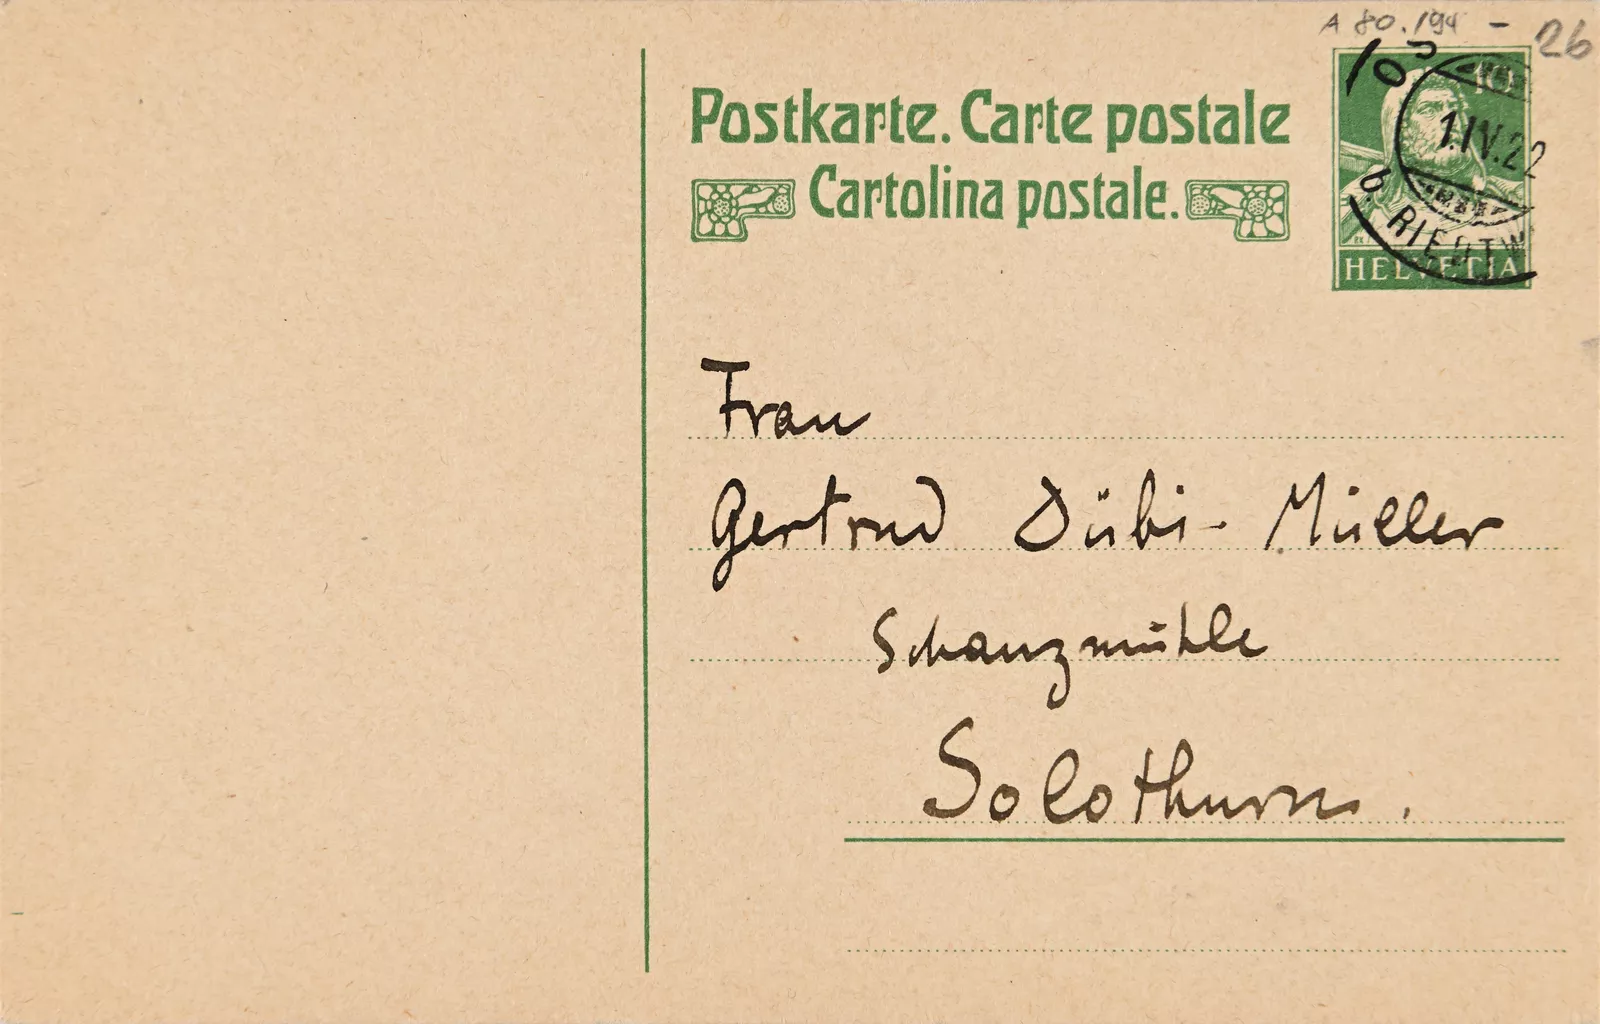 A 80.194 - 26
Postkarte. Carte postale
Cartolina postale.
1.IV.22
b. RIEDTW
HELVETIA
Frau
Gertrud Dübi-Müller
Schanzmühle
Solothurn.